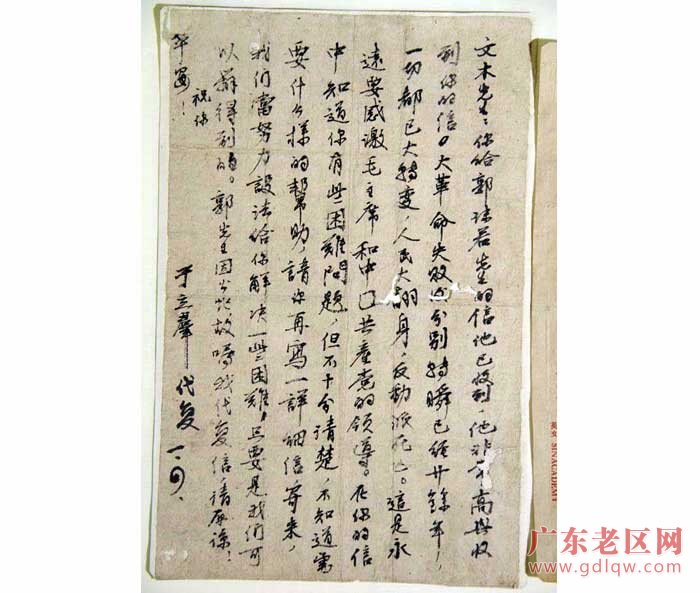 文木先生：你给郭沫若先生的信他已收到，他非常高兴收
到你的信。大革命失败后分别转瞬已经廿余年，
一切都已大转变，人民大翻身，反动派死亡。這是永
遠要感激毛主席和中国共產党的领導。在你的信
中知道你有些困難问题，但不十分清楚，不知道需
要什么样的幫助，請你再寫一詳细信寄来，
我们當努力設法给你解决一些困難，只要是我们可
以辦得到的。郭先生因公忙故嘱我代复信，请原谅！
祝你
平安！
于立群代复
SINACADEMY
广东老区网
www.gdlqw.com